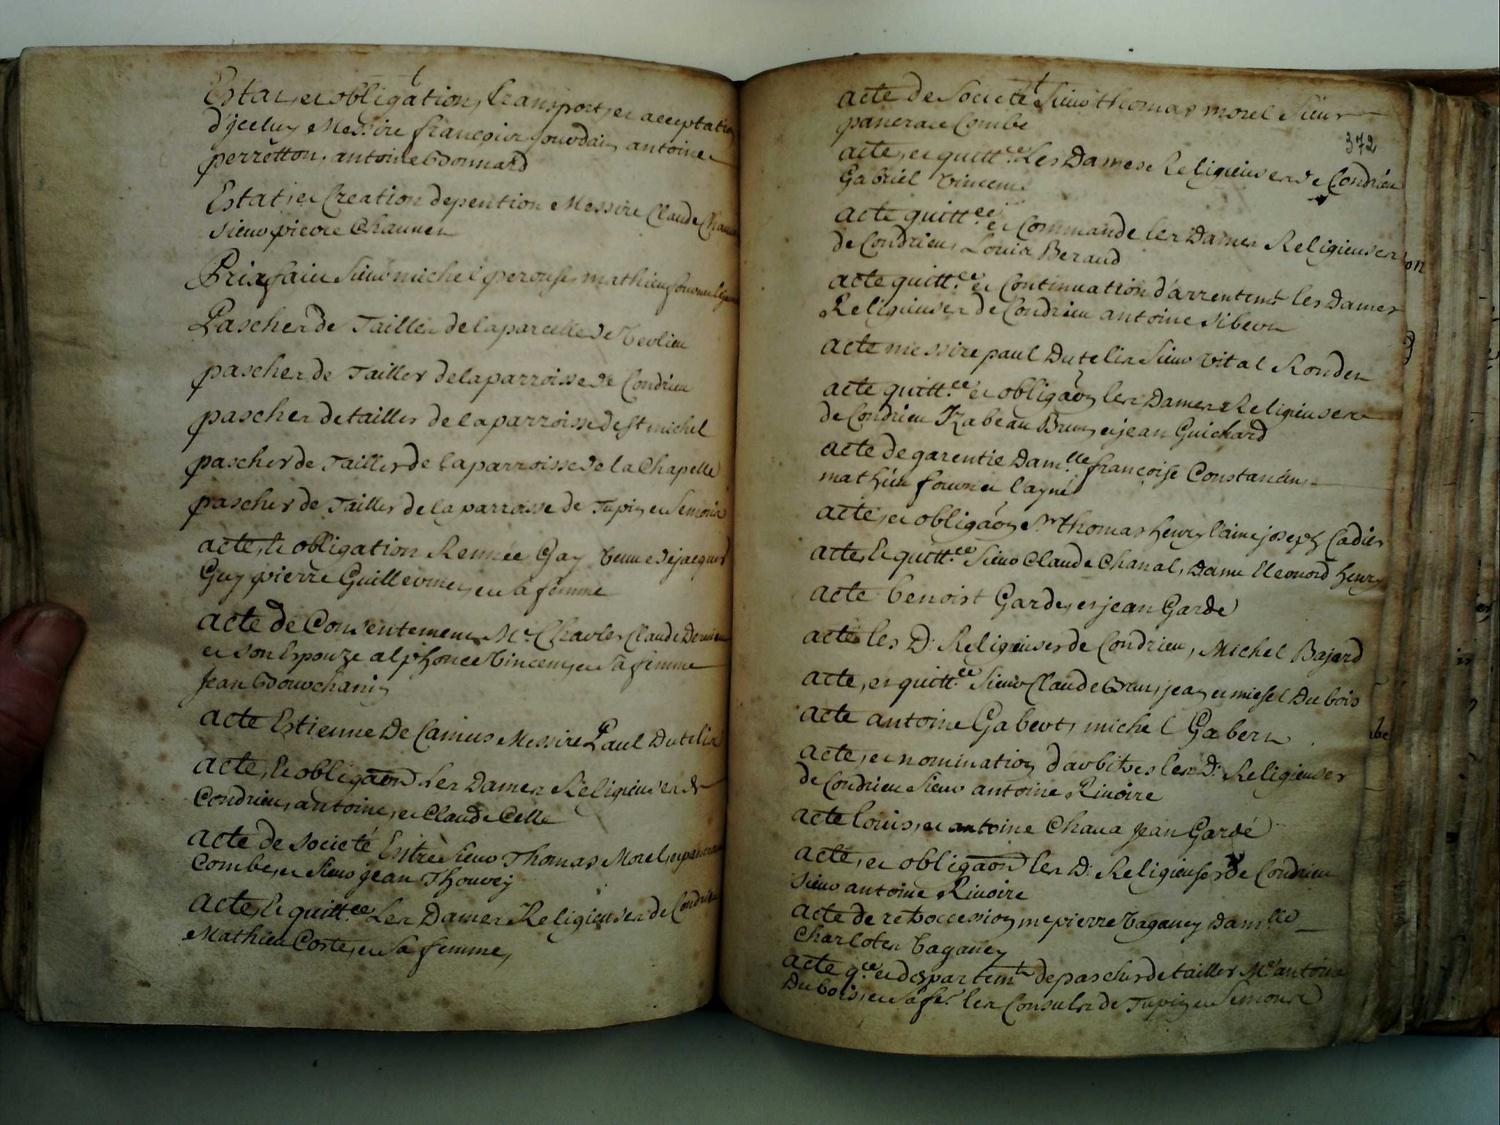 Estat, et obligation, transport, et acceptation
d'yceluy Messire françois jourdain, antoine
perretton, antoine Bonnard
Estat, et Creation depention Messire Claude
Sieur pierre Chauuet
Prixfait Sieur michel perouse, mathieu
Pascher de Tailles de la parcelle de
pascher de Tailles de la parroisse de Condrieu
pascher de tailles de la parroisse de st michel
pascher de Tailles de la parroisse de la Chapelle
pascher de Tailles de la parroisse de Tupin, et Semons
acte, et obligation Rennée Gay veuue de jacques
Guy pierre Guillermin, et sa femme
acte de Consentement Me Charles Claude
et son Espouze alphonce Vincent, et sa femme
Jean
acte Estienne De Camus Messire Paul Dutelis
acte, et obligaon Les Dames Religieuses de
Condrieu, antoine, et Claude Celle
acte de societé Entre Sieur Thomas Morel, et pancrace
Combe, et Sieur jean Thouvey
acte, et quittce Les Dames Religieuses de Condrieu
Mathieu Coste, et sa femme,
acte de Societé Sieur thomas morel Sieur
pancrace Combe
372
acte, et quittce Les Dames Religieuses de Condrieu
Gabriel Vincent
acte quittce et Commande les Dames Religieuses
de Condrieu, Louis Beraud
acte quittce et Continuation d'arrentemt les Dames
Religieuses de Condrieu antoine
acte messire paul Dutelis Sieur vital Rondet
acte quittce et obligaon, les Dames Religieuses
de Condrieu Izabeau Brun, et jean Guichard
acte de garentie Damlle françoise Constantin
mathieu fournet layné
acte, et obligaon, Sr thomas henry laine joseph Cadier
acte, et quittce Sieur Claude Chanal, Dame Eleonord henry
acte benoist Garde, et jean Garde
acte les D. Religieuses de Condrieu, Michel Bajard
acte, et quittce Sieur Claude Brun, jean, et michel Dubois
acte antoine Gabert, michel Gabert
acte, et nomination d'arbitres les D. Religieuses
de Condrieu Sieur antoine Riuoire
acte louis, et antoine Chaua jean Gardé
acte, et obligaon les D. Religieuses de Condrieu
Sieur antoine Riuoire
acte de me pierre Damlle
Charlote
acte qce et despartemt de pascher de tailles Me antoine
Dubois, et sa fe. les Consulz de Tupin, et Semons